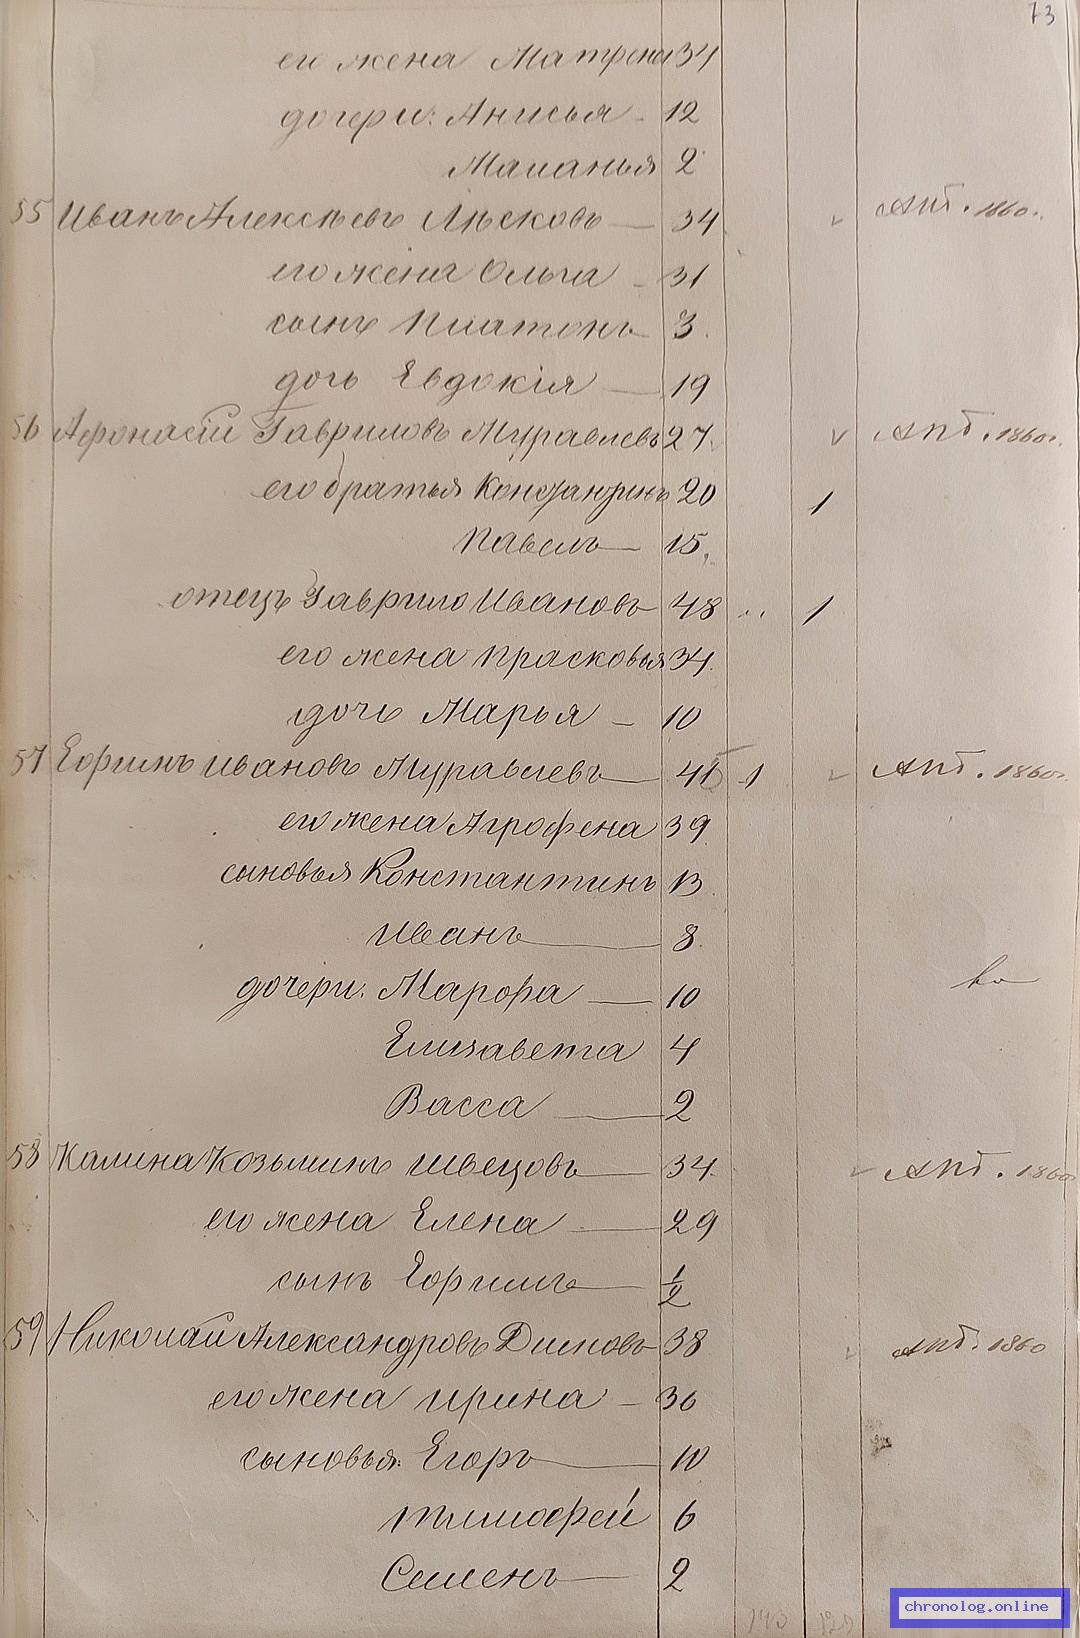 73
его жена Матрена 34
дочери: Анисья - 12
Маланья 2
55 Иванъ Алексѣевъ Лѣсковъ — 34 Апб. 1860г.
его жена Ольга - 31
сынъ Платонъ 3.
дочь Евдокія — 19
56 Афонасій Гавриловъ Муравлевъ 27. v Апб. 1860г.
его братья Константинъ 20 1
Павелъ — 15,
отецъ Гаврило Ивановъ 48 1
его жена Прасковья 34.
дочь Марья - 10
57 Ефримъ Ивановъ Муравлевъ — 1 Апб. 1860г.
его жена Агрофена 39
сыновья Константинъ 13
Иванъ — 8.
дочери: Марфа — 10
Елизавета 4
Васса — 2
58 Калина Козьминъ Швецовъ — 34. Апб. 1860г.
его жена Елена — 29
сынъ Ефримъ — 1/2
59 Николай Александровъ 38 Апб. 1860
его жена Ирина - 36
сыновья: Егоръ — 10
Тимофей 6
Семенъ — 2
chronolog.online